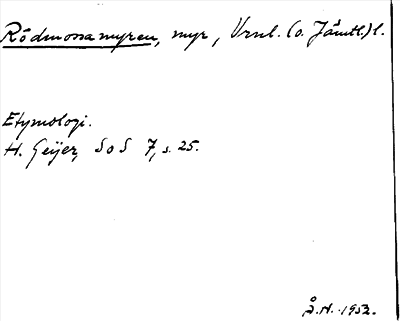 Rödmossamyren, myr, Vrml. (o. Jämtl.) l.
Etymologi.
H. Geijer, SoS 7, s. 25.
Å.H. 1953.